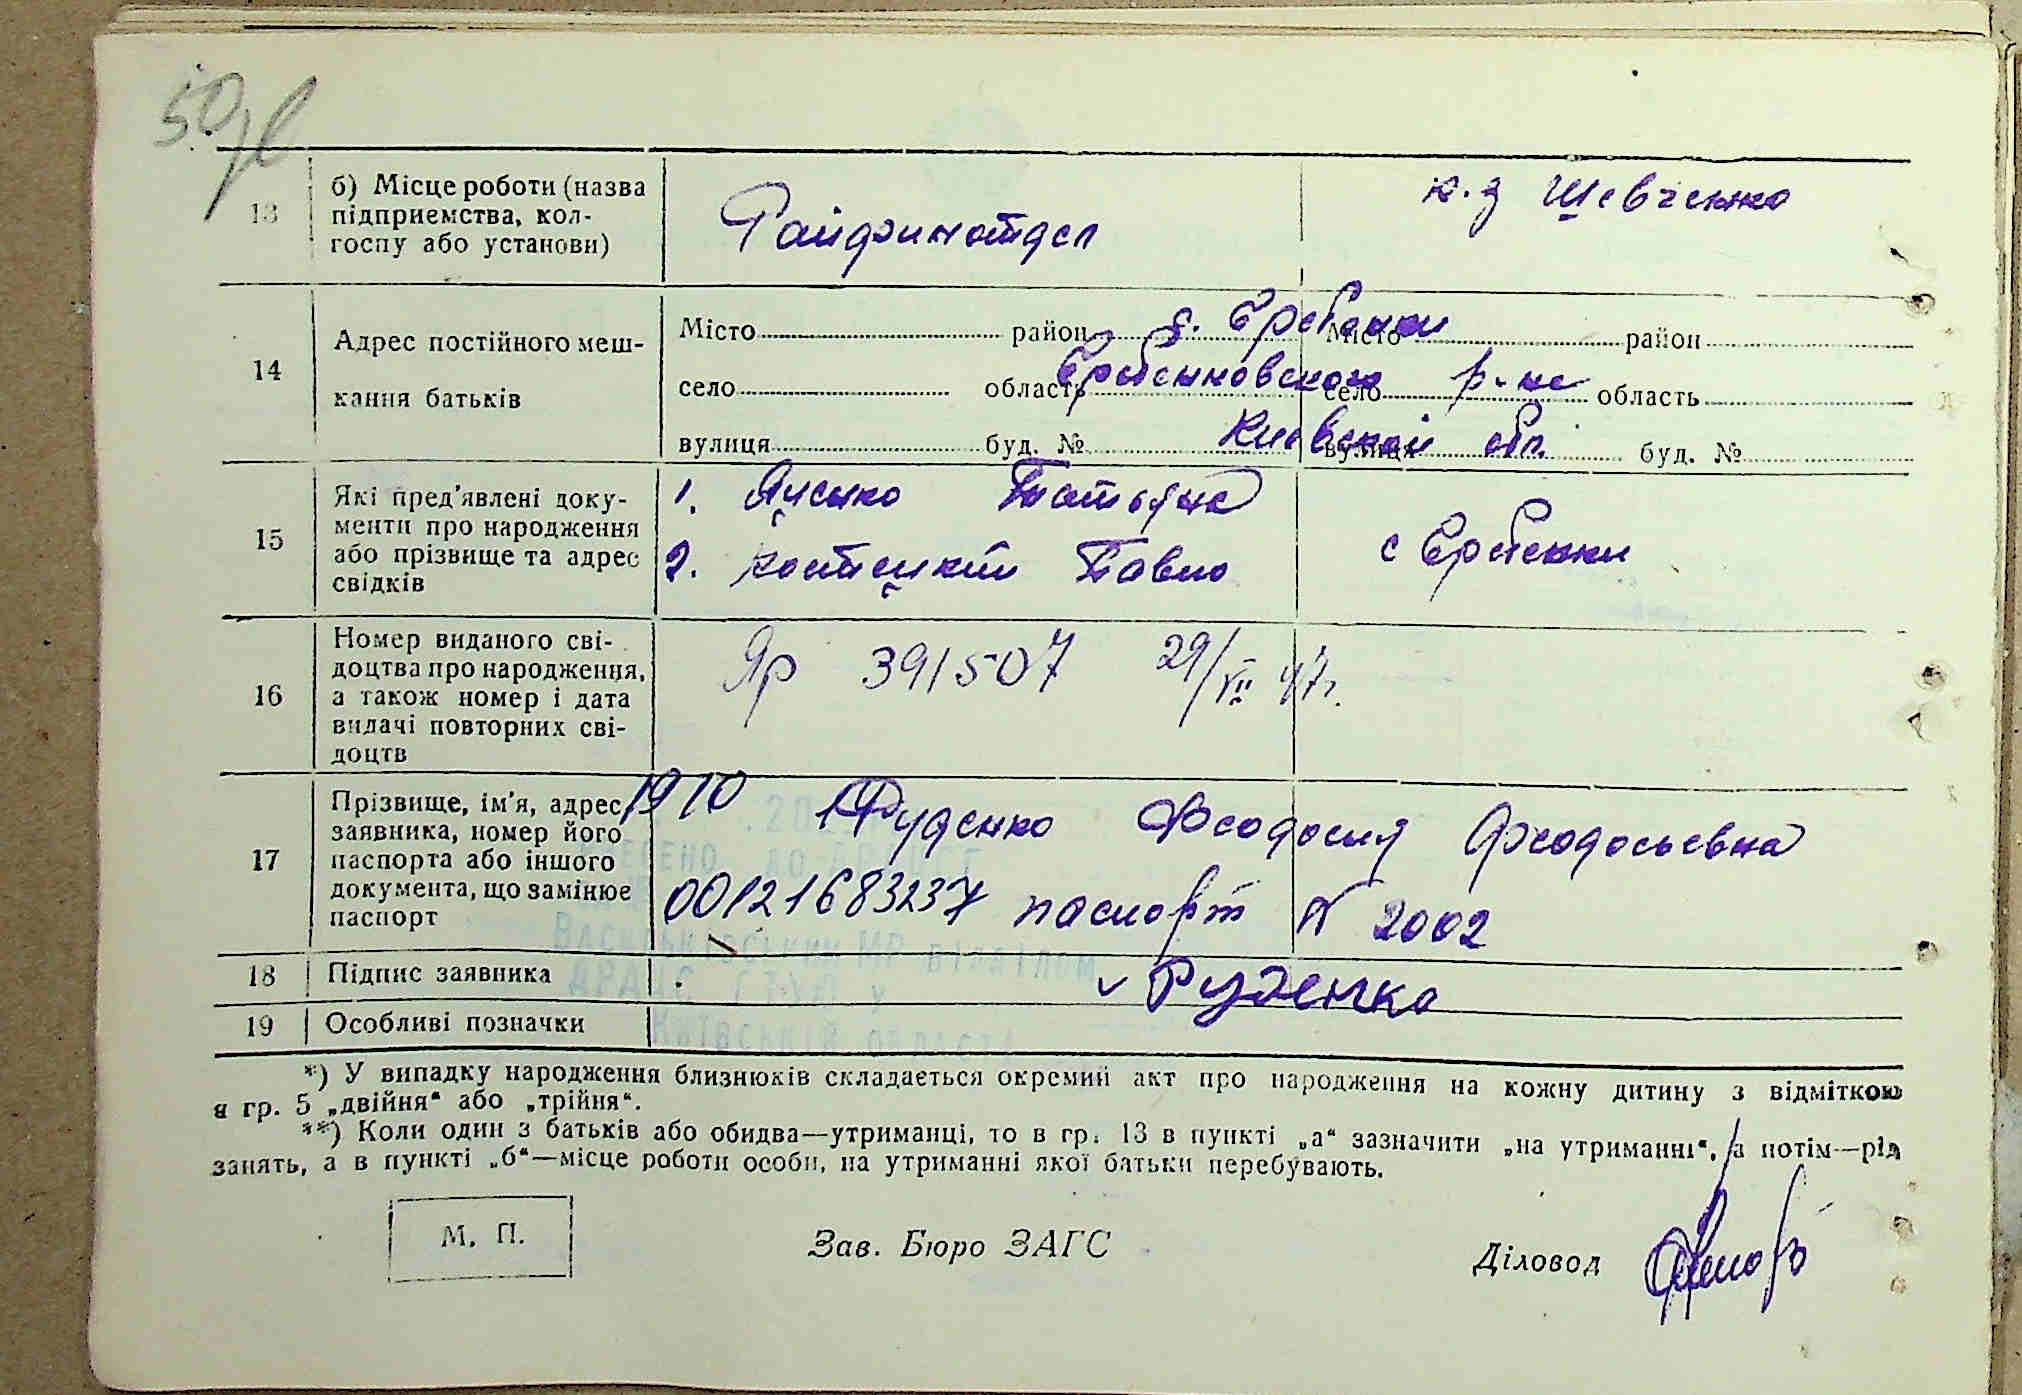 50
13 б) Місце роботи (назва підприємства, колгоспу або установи) Райфинотдел к.з Шевченко
б) Місце роботи (назва
підприємства, кол-
госпу або установи)
14
Адрес постійного меш-
кання батьків
Місто район с. Гребенки Місто район
село область Гребенковского р-на село область
вулиця буд. № Киевской обл. вулиця буд. №
15
Які пред'явлені доку-
менти про народження
або прізвище та адрес
свідків
1. Яценко Татьяна
2. Костецкий Павло
с Гребенки
16
Номер виданого сві-
доцтва про народження,
а також номер і дата
видачі повторних сві-
доцтв
Яр 391507 29/VII 47г.
17
Прізвище, ім'я, адрес
заявника, номер його
паспорта або іншого
документа, що замінює
паспорт
1910 Руденко Феодосия Феодосьевна
00121683237 паспорт N 2002
ВНЕСЕНО ДО ДРАЦСГ
Васильківським МР відділом
ДРАЦС ГТУЮ у
Київській області
18 Підпис заявника v Руденко
19 Особливі позначки
*) У випадку народження близнюків складається окремий акт про народження на кожну дитину з відміткою
в гр. 5 „двійня“ або „трійня“.
**) Коли один з батьків або обидва—утриманці, то в гр. 13 в пункті „а“ зазначити „на утриманні“, а потім—рід
занять, а в пункті „б“—місце роботи особи, на утриманні якої батьки перебувають.
М. П.
Зав. Бюро ЗАГС
Діловод